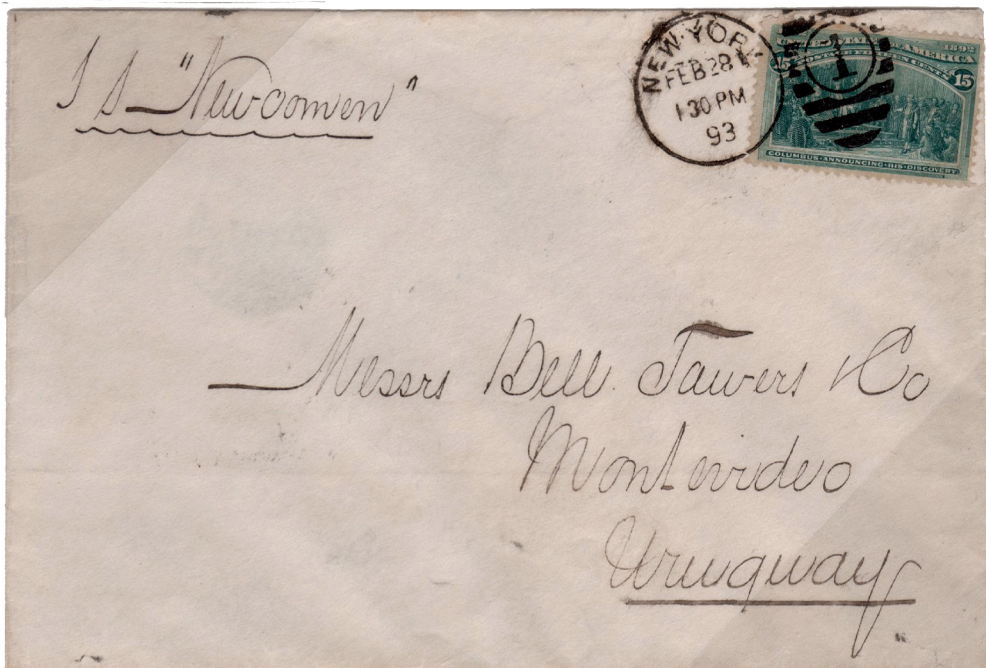 S S "Newcomen"
NEW YORK
FEB 28
1 30 PM
93
1
UNITED STATES OF AMERICA
1892
15
COLUMBUS ANNOUNCING HIS DISCOVERY
Messrs Bell Tawers & Co
Montevideo
Uruguay